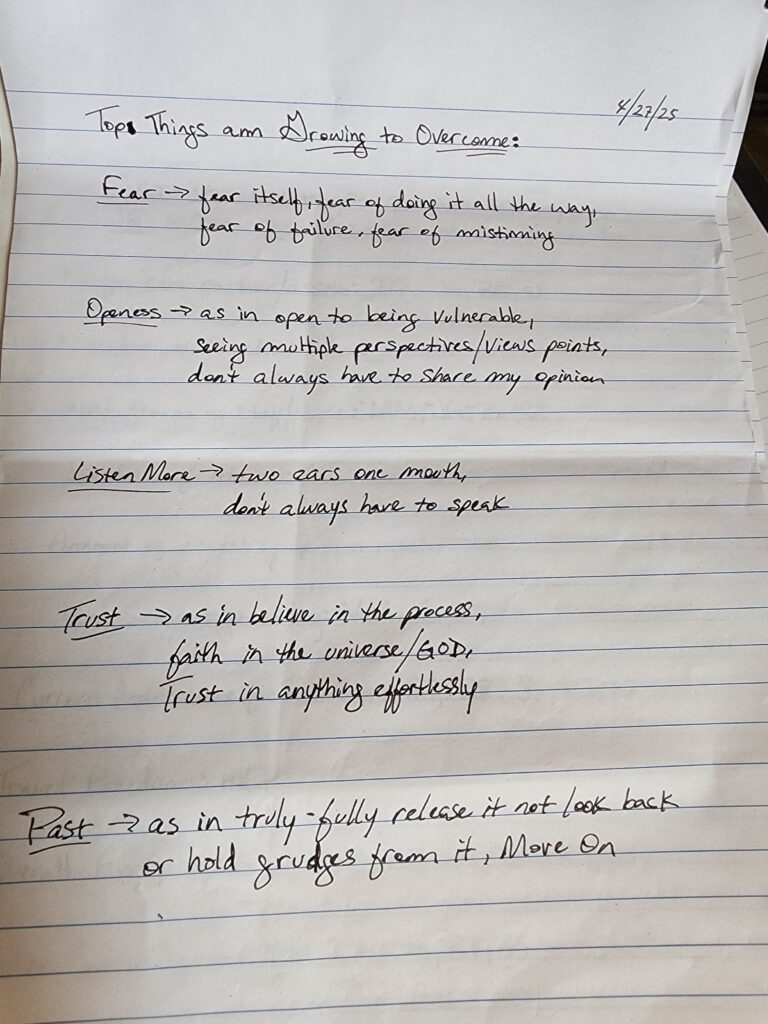 4/27/25
Top Things am Growing to Overcome:
Fear → fear itself, fear of doing it all the way,
fear of failure, fear of mistiming
Openess → as in open to being vulnerable,
seeing multiple perspectives/views points,
don't always have to share my opinion
Listen More → two ears one mouth,
don't always have to speak
Trust → as in believe in the process,
faith in the universe/GOD,
Trust in anything effortlessly
Past → as in truly-fully release it not look back
or hold grudges from it, Move On